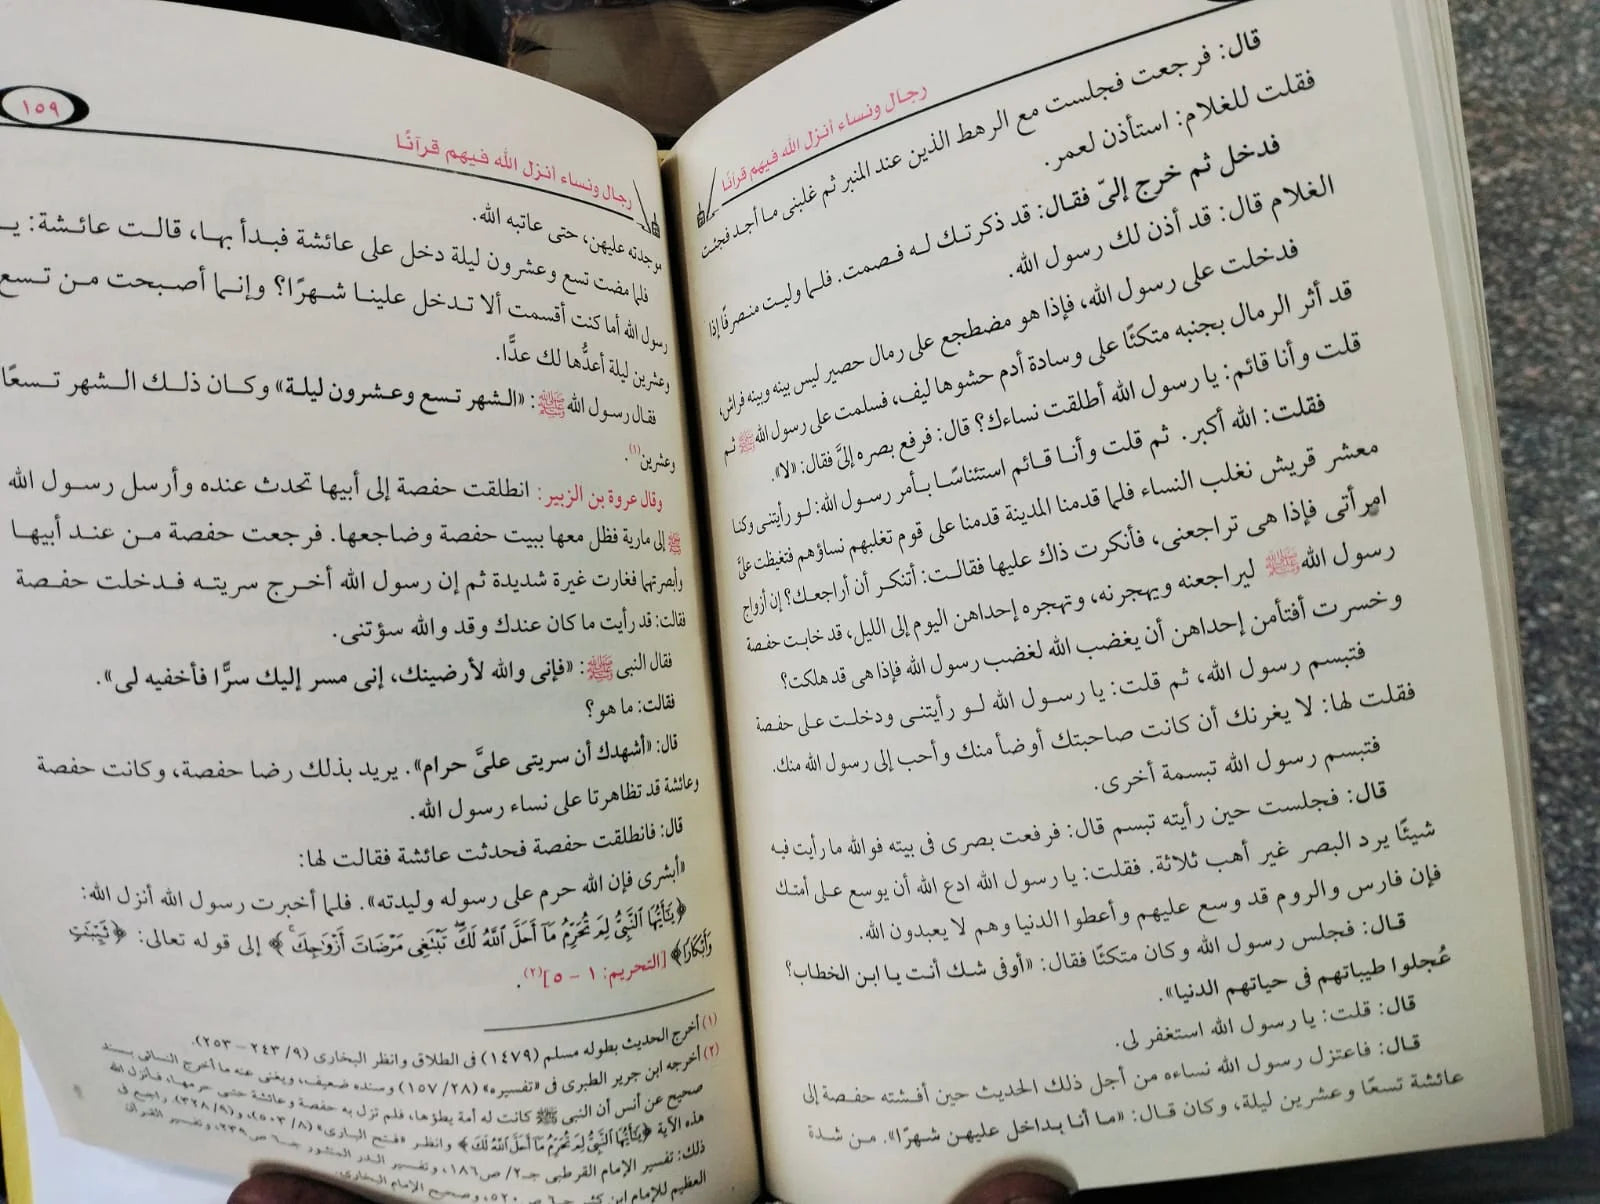 رجال ونساء أنزل الله فيهم قرآنًا
قال: فرجعت فجلست مع الرهط الذين عند المنبر ثم غلبنى ما أجد فجئت
فقلت للغلام: استأذن لعمر.
فدخل ثم خرج إلىّ فقال: قد ذكرتك له فصمت. فلما وليت منصرفًا إذا
الغلام قال: قد أذن لك رسول الله.
فدخلت على رسول الله، فإذا هو مضطجع على رمال حصير ليس بينه وبينه فراش،
قد أثر الرمال بجنبه متكئًا على وسادة أدم حشوها ليف، فسلمت على رسول الله ﷺ ثم
قلت وأنا قائم: يا رسول الله أطلقت نساءك؟ قال: فرفع بصره إلىَّ فقال: «لا».
فقلت: الله أكبر. ثم قلت وأنا قائم استئناسًا بأمر رسول الله: لو رأيتنى وكنا
معشر قريش نغلب النساء فلما قدمنا المدينة قدمنا على قوم تغلبهم نساؤهم فتغيظت علىَّ
امرأتى فإذا هى تراجعنى، فأنكرت ذاك عليها فقالت: أتنكر أن أراجعك؟ إن أزواج
رسول الله ﷺ ليراجعنه ويهجرنه، وتهجره إحداهن اليوم إلى الليل، قد خابت حفصة
وخسرت أفتأمن إحداهن أن يغضب الله لغضب رسول الله فإذا هى قد هلكت؟
فتبسم رسول الله، ثم قلت: يا رسول الله لو رأيتنى ودخلت على حفصة
فقلت لها: لا يغرنك أن كانت صاحبتك أوضأ منك وأحب إلى رسول الله منك.
فتبسم رسول الله تبسمة أخرى.
قال: فجلست حين رأيته تبسم قال: فرفعت بصرى فى بيته فوالله ما رأيت فيه
شيئًا يرد البصر غير أهب ثلاثة. فقلت: يا رسول الله ادع الله أن يوسع على أمتك
فإن فارس والروم قد وسع عليهم وأعطوا الدنيا وهم لا يعبدون الله.
قال: فجلس رسول الله وكان متكئًا فقال: «أوفى شك أنت يا ابن الخطاب؟
عُجلوا طيباتهم فى حياتهم الدنيا».
قال: قلت: يا رسول الله استغفر لى.
قال: فاعتزل رسول الله نساءه من أجل ذلك الحديث حين أفشته حفصة إلى
عائشة تسعًا وعشرين ليلة، وكان قال: «ما أنا بداخل عليهن شهرًا». من شدة
١٥٩
رجال ونساء أنزل الله فيهم قرآنًا
موجدته عليهن، حتى عاتبه الله.
فلما مضت تسع وعشرون ليلة دخل على عائشة فبدأ بها، قالت عائشة: يا
رسول الله أما كنت أقسمت ألا تدخل علينا شهرًا؟ وإنما أصبحت من تسع
وعشرين ليلة أعدُّها لك عدًّا.
فقال رسول الله ﷺ: «الشهر تسع وعشرون ليلة» وكان ذلك الشهر تسعًا
وعشرين(١).
وقال عروة بن الزبير: انطلقت حفصة إلى أبيها تحدث عنده وأرسل رسول الله
ﷺ إلى مارية فظل معها ببيت حفصة وضاجعها. فرجعت حفصة من عند أبيها
وأبصرتهما فغارت غيرة شديدة ثم إن رسول الله أخرج سريته فدخلت حفصة
فقالت: قد رأيت ما كان عندك وقد والله سؤتنى.
فقال النبى ﷺ: «فإنى والله لأرضينك، إنى مسر إليك سرًّا فأخفيه لى».
فقالت: ما هو؟
قال: «أشهدك أن سريتى علىَّ حرام». يريد بذلك رضا حفصة، وكانت حفصة
وعائشة قد تظاهرتا على نساء رسول الله.
قال: فانطلقت حفصة فحدثت عائشة فقالت لها:
«أبشرى فإن الله حرم على رسوله وليدته». فلما أخبرت رسول الله أنزل الله:
﴿يَٰٓأَيُّهَا ٱلنَّبِىُّ لِمَ تُحَرِّمُ مَآ أَحَلَّ ٱللَّهُ لَكَ ۖ تَبْتَغِى مَرْضَاتَ أَزْوَٰجِكَ ۚ﴾ إلى قوله تعالى: ﴿ثَيِّبَٰتٍ
وَأَبْكَارًا﴾ [التحريم: ١ - ٥](٢).
(١) أخرج الحديث بطوله مسلم (١٤٧٩) فى الطلاق وانظر البخارى (٩/ ٢٤٣ - ٢٥٣).
(٢) أخرجه ابن جرير الطبرى فى «تفسيره» (٢٨/ ١٥٧) وسنده ضعيف، ويغنى عنه ما أخرج النسائى بسند
صحيح عن أنس أن النبى ﷺ كانت له أمة يطؤها، فلم تزل به حفصة وعائشة حتى حرمها، فأنزل الله
هذه الآية ﴿يَٰٓأَيُّهَا ٱلنَّبِىُّ لِمَ تُحَرِّمُ مَآ أَحَلَّ ٱللَّهُ لَكَ﴾ وانظر «فتح البارى» (٨/ ٥٠٣)، و(٩/ ٣٢٨). راجع فى
ذلك: تفسير الإمام القرطبى جـ٢/ ص١٨٦، وتفسير الدر المنثور جـ٦ ص٢٣٩، وتفسير القرآن
العظيم للإمام ابن كثير جـ٦ ص ٥٢٠، وصحيح الإمام البخارى.